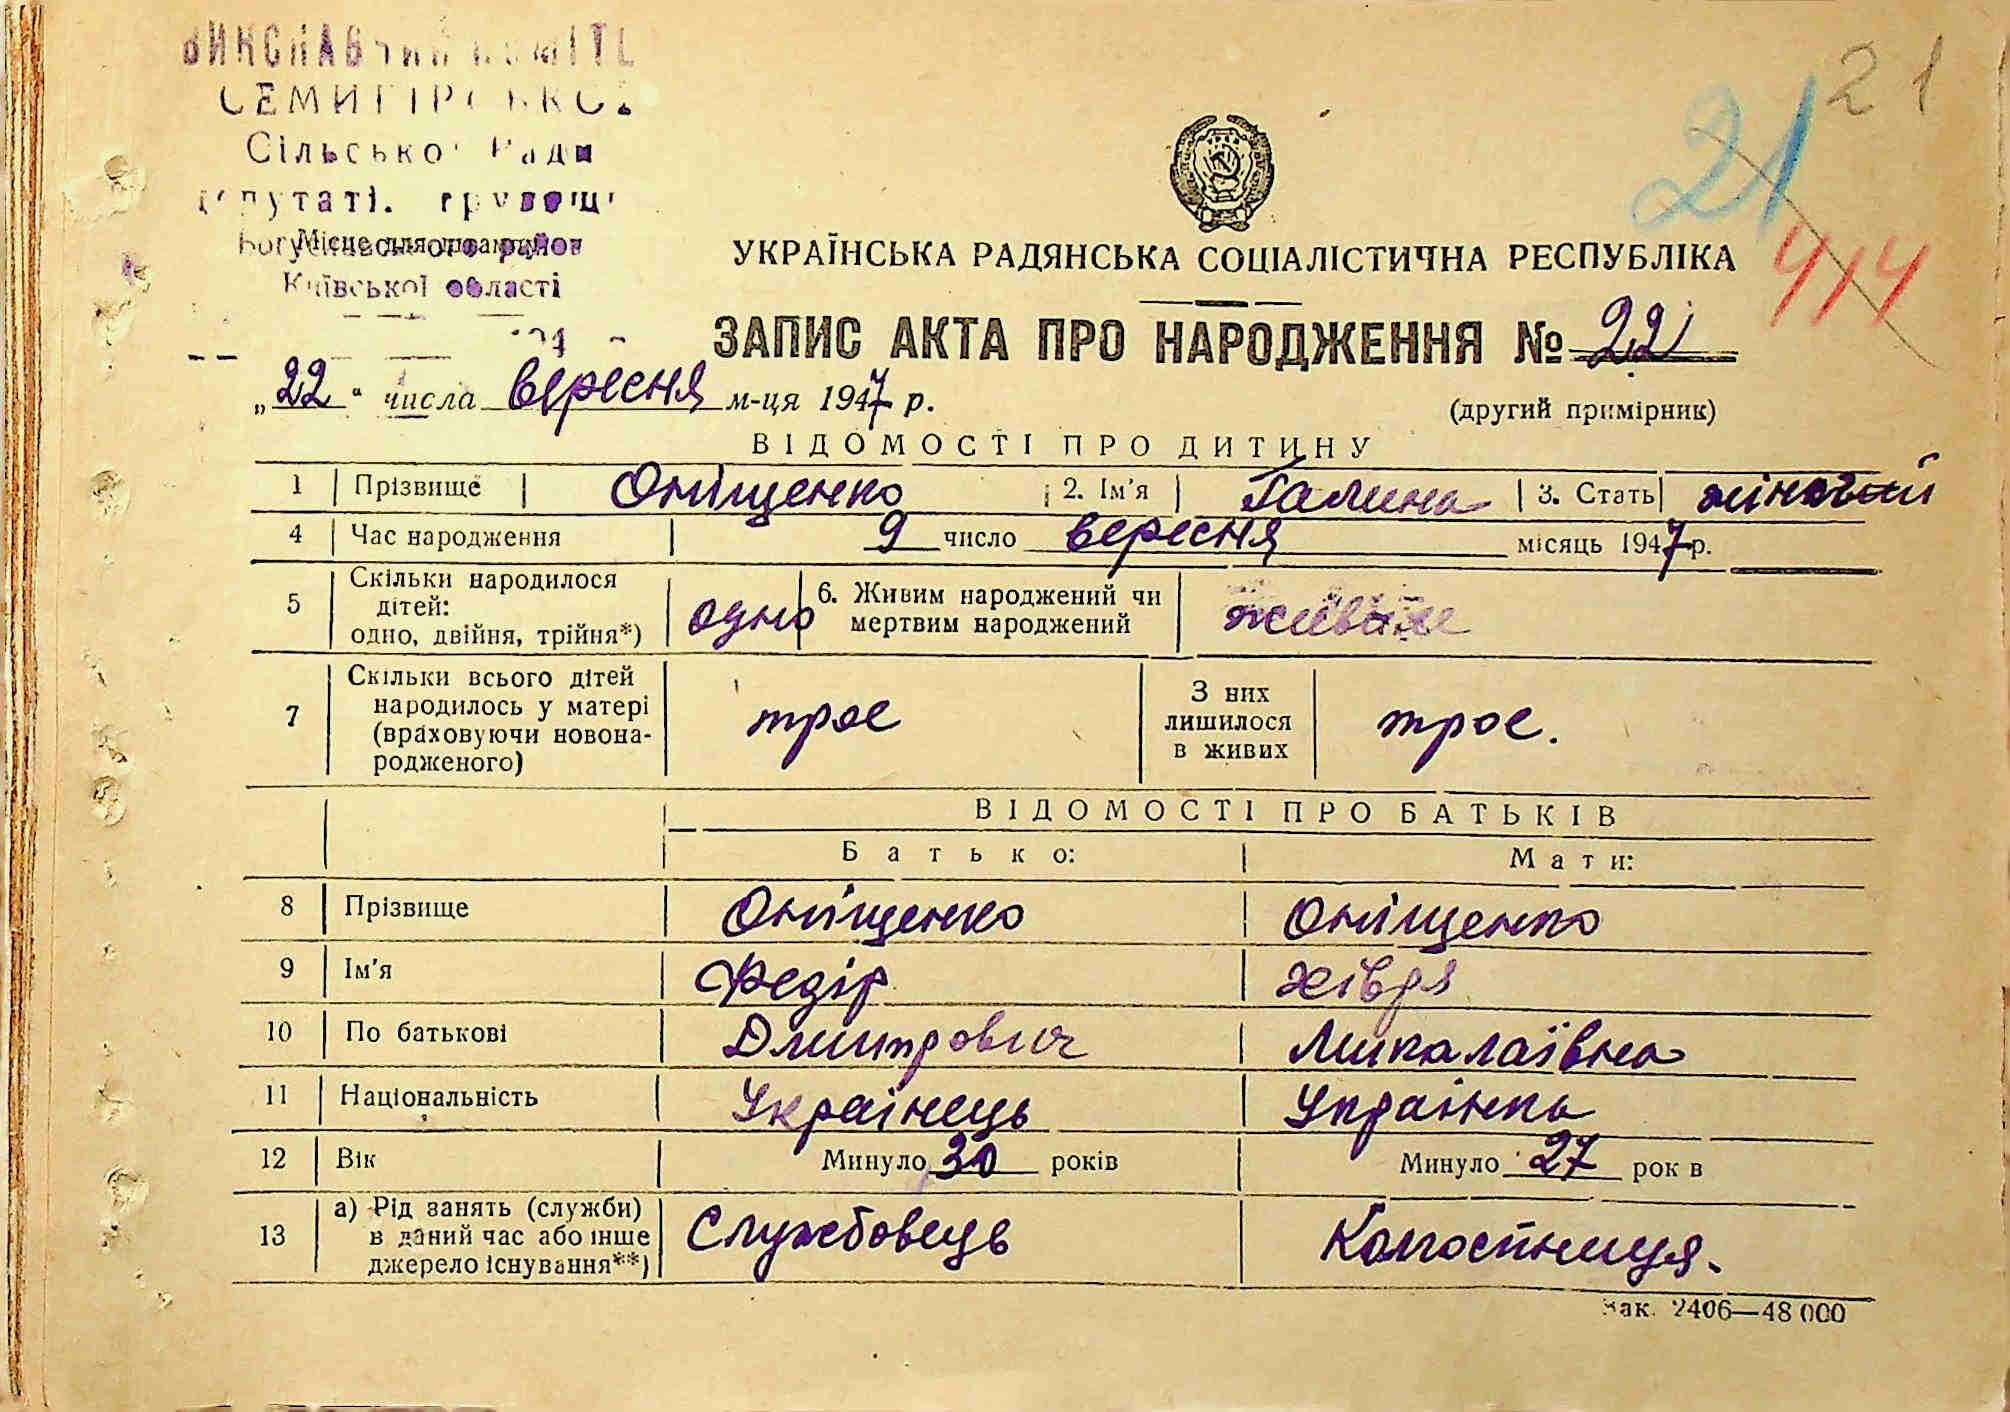 21
СЕМИГІРСЬКОЇ
Сільської Ради
21
УКРАЇНСЬКА РАДЯНСЬКА СОЦІАЛІСТИЧНА РЕСПУБЛІКА
414
Київської області
ЗАПИС АКТА ПРО НАРОДЖЕННЯ № 22
„22“ числа вересня м-ця 1947 р.
(другий примірник)
ВІДОМОСТІ ПРО ДИТИНУ
1 Прізвище Оніщенко 2. Ім'я Галина 3. Стать жіночий
4 Час народження 9 число вересня місяць 1947 р.
5 Скільки народилося дітей: одно, двійня, трійня*) одно 6. Живим народжений чи мертвим народжений живим
7 Скільки всього дітей народилось у матері (враховуючи новонародженого) троє З них лишилося в живих троє.
ВІДОМОСТІ ПРО БАТЬКІВ
Батько: Мати:
8 Прізвище Оніщенко Оніщенко
9 Ім'я Федір Хівря
10 По батькові Дмитрович Миколаївна
11 Національність Українець Українка
12 Вік Минуло 30 років Минуло 27 років
13 а) Рід занять (служби) в даний час або інше джерело існування**) Службовець Колгоспниця.
Зак. 2406—48 000